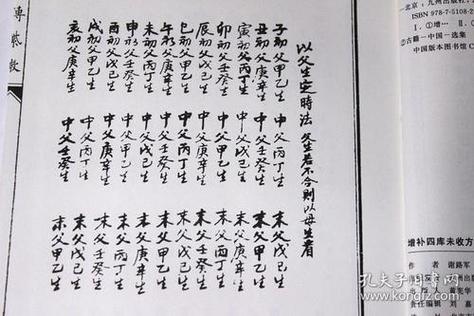 以父生定時法 父生若不合則以母生看
子初父甲乙生 中父丙丁生 末父戊己生
丑初父庚辛生 中父壬癸生 末父甲乙生
寅初父丙丁生 中父戊己生 末父庚辛生
卯初父壬癸生 中父甲乙生 末父丙丁生
辰初父戊己生 中父庚辛生 末父壬癸生
巳初父甲乙生 中父丙丁生 末父戊己生
午初父庚辛生 中父壬癸生 末父甲乙生
未初父丙丁生 中父戊己生 末父庚辛生
申初父壬癸生 中父甲乙生 末父丙丁生
酉初父戊己生 中父庚辛生 末父壬癸生
戌初父甲乙生 中父丙丁生 末父戊己生
亥初父庚辛生 中父壬癸生 末父甲乙生
北京：九州出版社
ISBN 978-7-5108-2
Ⅰ.①增… Ⅱ.①
②古籍－中国－选集
中国版本图书馆C
增补四库未收方
作 者 谢路军
责任编辑
孔夫子旧书网
www.kongfz.com